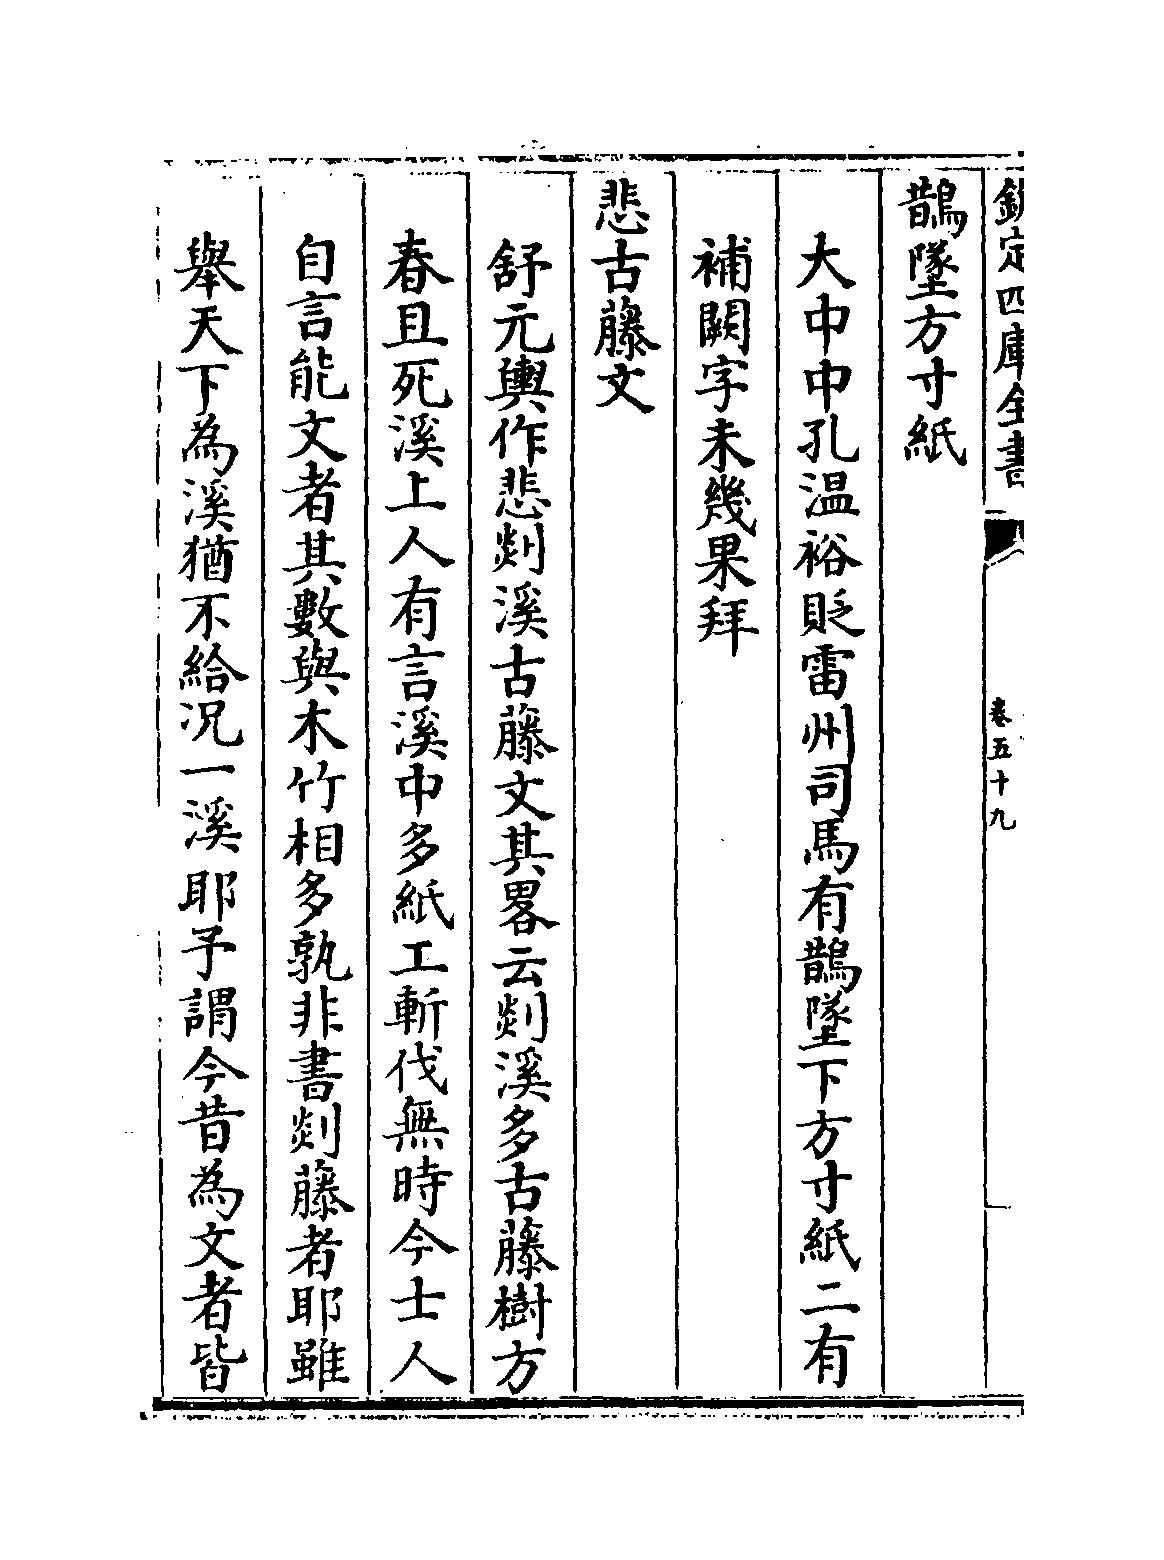 欽定四庫全書
卷五十九
鵲墜方寸紙
大中中孔温裕貶雷州司馬有鵲墜下方寸紙二有
補闕字未幾果拜
悲古藤文
舒元輿作悲剡溪古藤文其畧云剡溪多古藤樹方
春且死溪上人有言溪中多紙工斬伐無時今士人
自言能文者其數與木竹相多孰非書剡藤者耶雖
舉天下為溪猶不給況一溪耶予謂今昔為文者皆